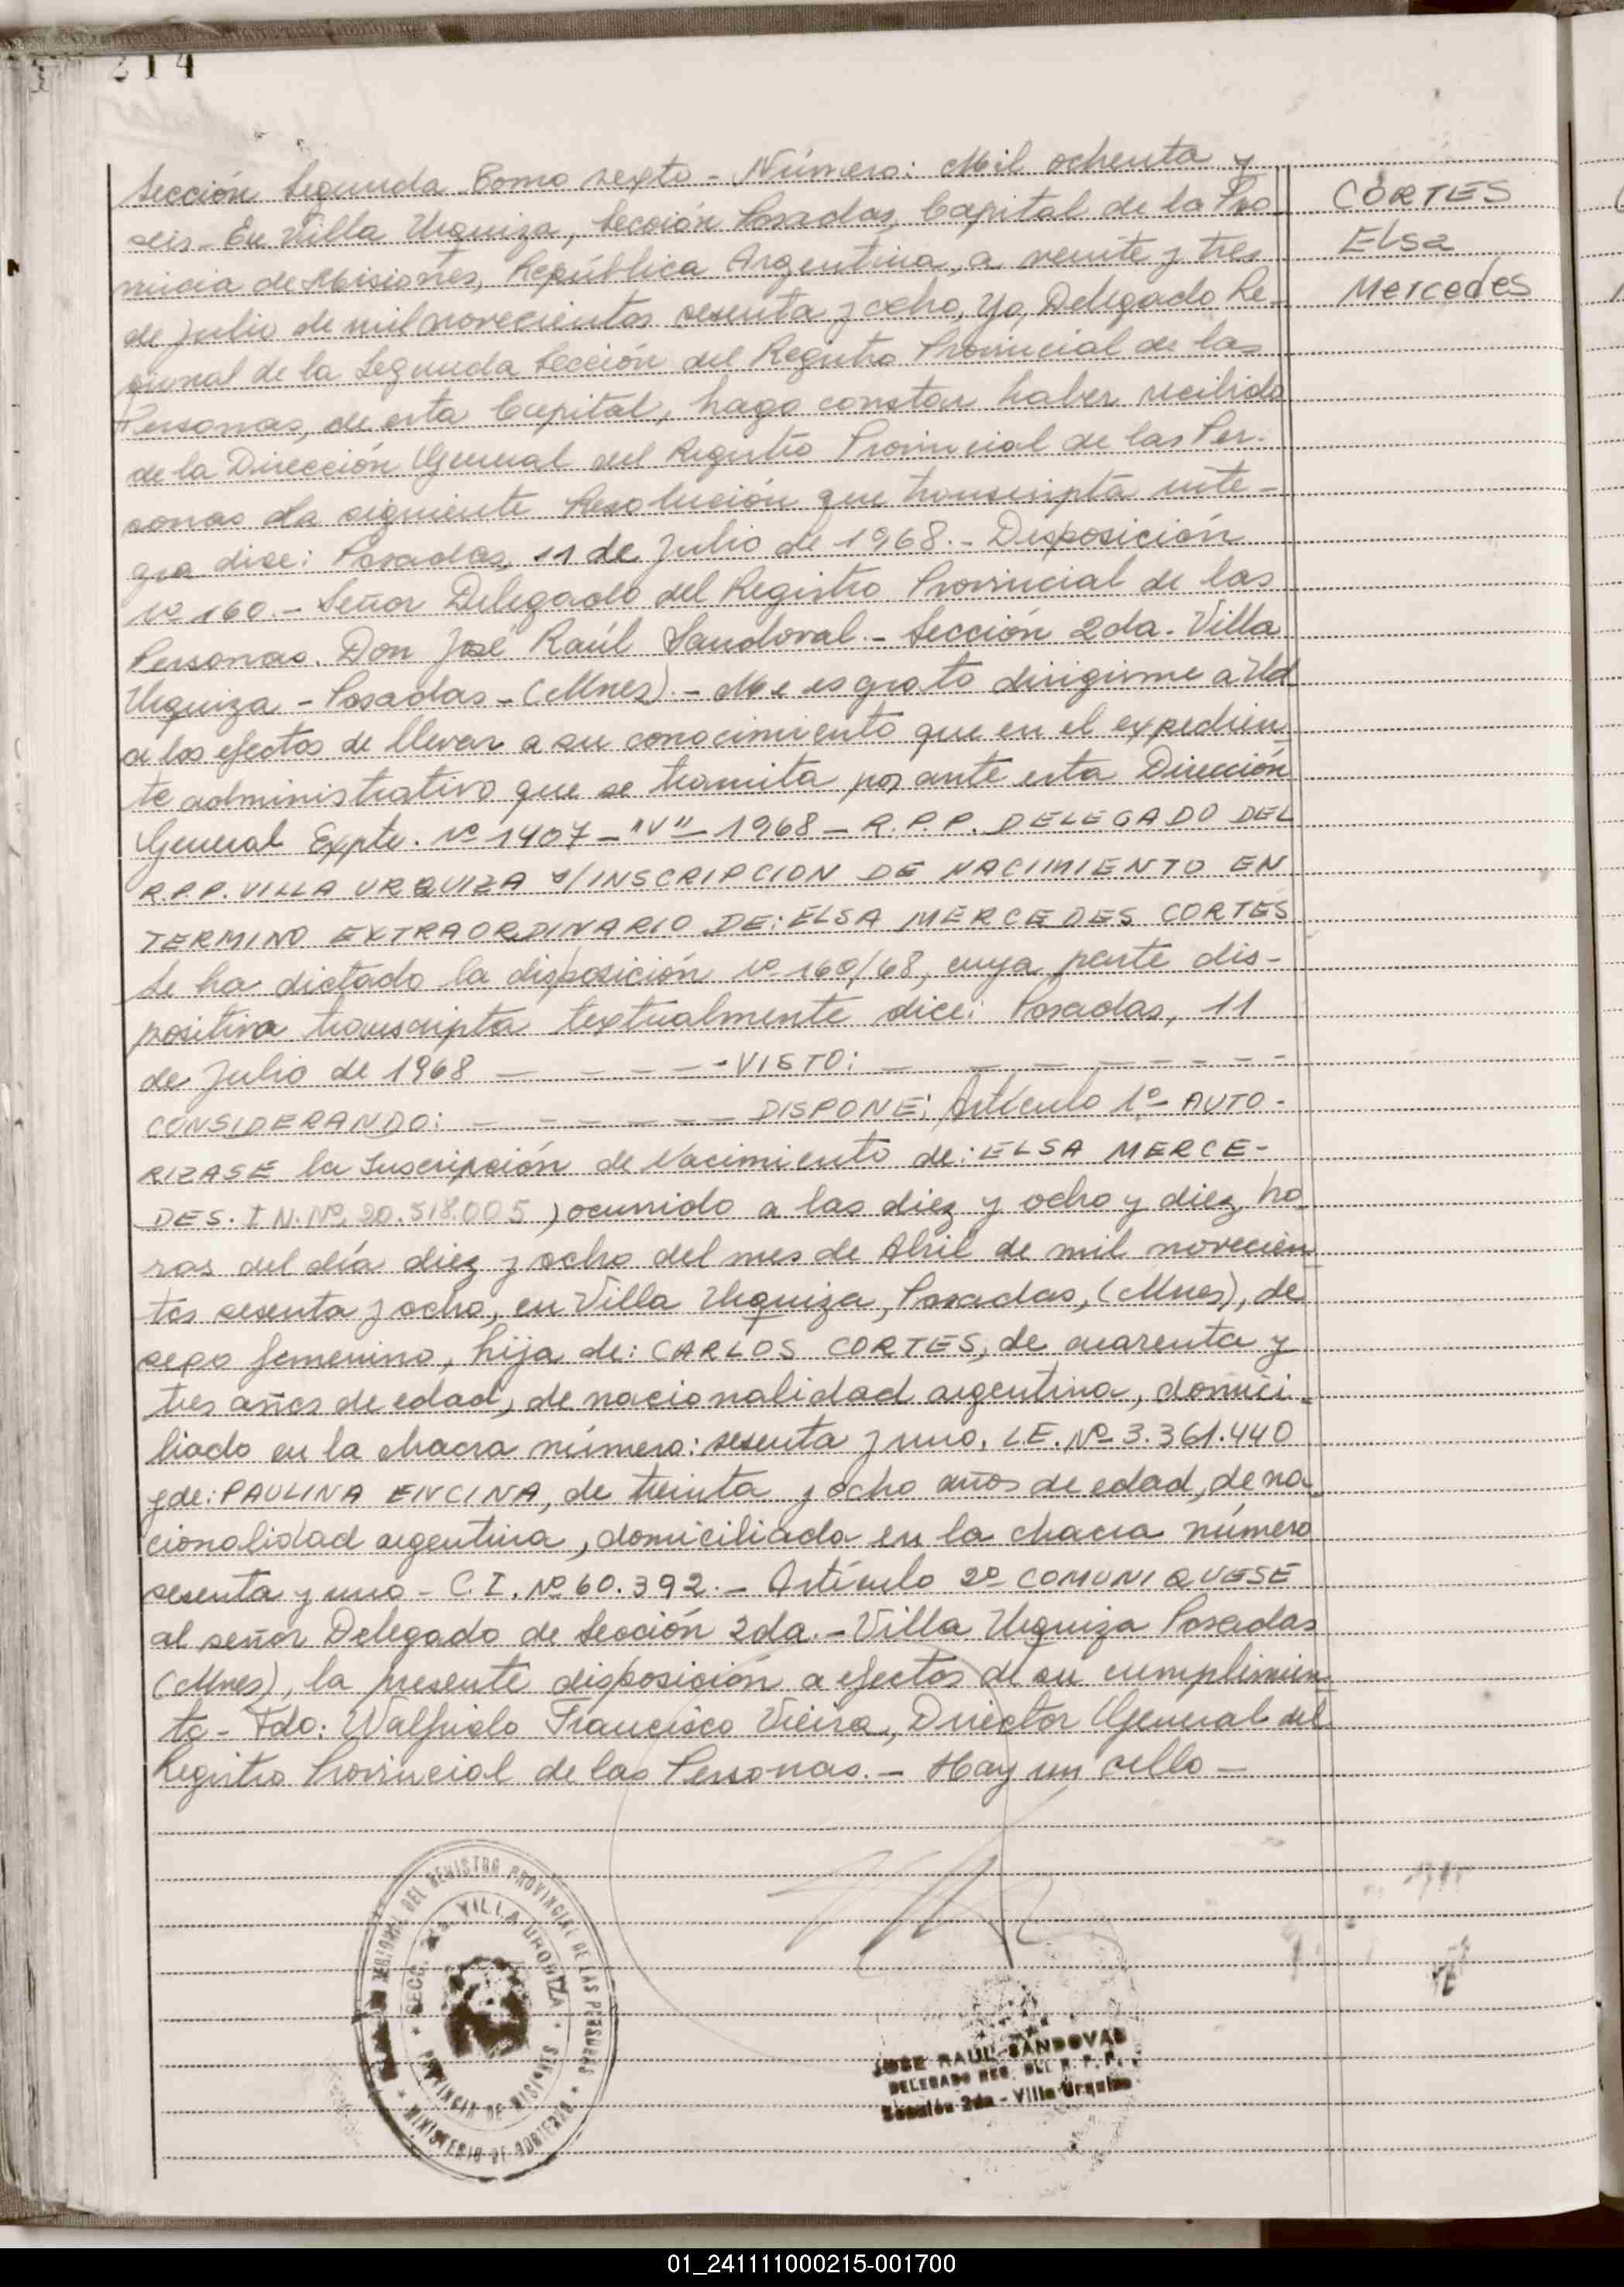 214
Sección Segunda Tomo sexto - Número: Mil ochenta y
seis - En Villa Urquiza, Sección Posadas, Capital de la Pro
vincia de Misiones, República Argentina, a veinte y tres
de Julio de mil novecientos sesenta y ocho, yo, Delegado Re-
gional de la Segunda Sección del Registro Provincial de las
Personas, de esta Capital, hago constar haber recibido
de la Dirección General del Registro Provincial de las Per-
sonas la siguiente Resolución que transcripta inte-
gra dice: Posadas, 11 de Julio de 1968.- Disposición
Nº 160.- Señor Delegado del Registro Provincial de las
Personas. Don José Raúl Sandoval.- Sección 2da. Villa
Urquiza - Posadas - (Mnes).- Me es grato dirigirme a Ud
a los efectos de llevar a su conocimiento que en el expedien
te administrativo que se tramita por ante esta Dirección
General Expte. Nº 1407 - "V" - 1968 - R.P.P. DELEGADO DEL
R.P.P. VILLA URQUIZA s/INSCRIPCION DE NACIMIENTO EN
TERMINO EXTRAORDINARIO DE: ELSA MERCEDES CORTES
Se ha dictado la disposición Nº 160/68, cuya parte dis-
positiva transcripta textualmente dice: Posadas, 11
de Julio de 1968 - - - - - - VISTO: - - - - - - - -
CONSIDERANDO: - - - - - - DISPONE: Artículo 1º - AUTO-
RIZASE la Inscripción de Nacimiento de: ELSA MERCE-
DES. I N. Nº 20.518.005) ocurrido a las diez y ocho y diez ho-
ras del día diez y ocho del mes de Abril de mil novecien
tos sesenta y ocho, en Villa Urquiza, Posadas, (Mnes), de
sexo femenino, hija de: CARLOS CORTES, de cuarenta y
tres años de edad, de nacionalidad argentina, domici-
liado en la chacra número: sesenta y uno, LE. Nº 3.361.440
y de: PAULINA ENCINA, de treinta y ocho años de edad, de na-
cionalidad argentina, domiciliada en la chacra número
sesenta y uno - C.I. Nº 60.392.- Artículo 2º COMUNIQUESE
al señor Delegado de Sección 2da.- Villa Urquiza Posadas
(Mnes), la presente disposición a efectos de su cumplimien
to - Fdo: Walfrido Francisco Vieira, Director General del
Registro Provincial de las Personas. - Hay un sello -
CORTES
ELSa
Mercedes
REGIONAL DEL REGISTRO PROVINCIAL DE LAS PERSONAS
SECC. 2da. VILLA URQUIZA
PROVINCIA DE MISIONES
MINISTERIO DE GOBIERNO
JOSE RAUL SANDOVAL
DELEGADO REG. DEL R. P. P.
Sección 2da - Villa Urquiza
01_241111000215-001700